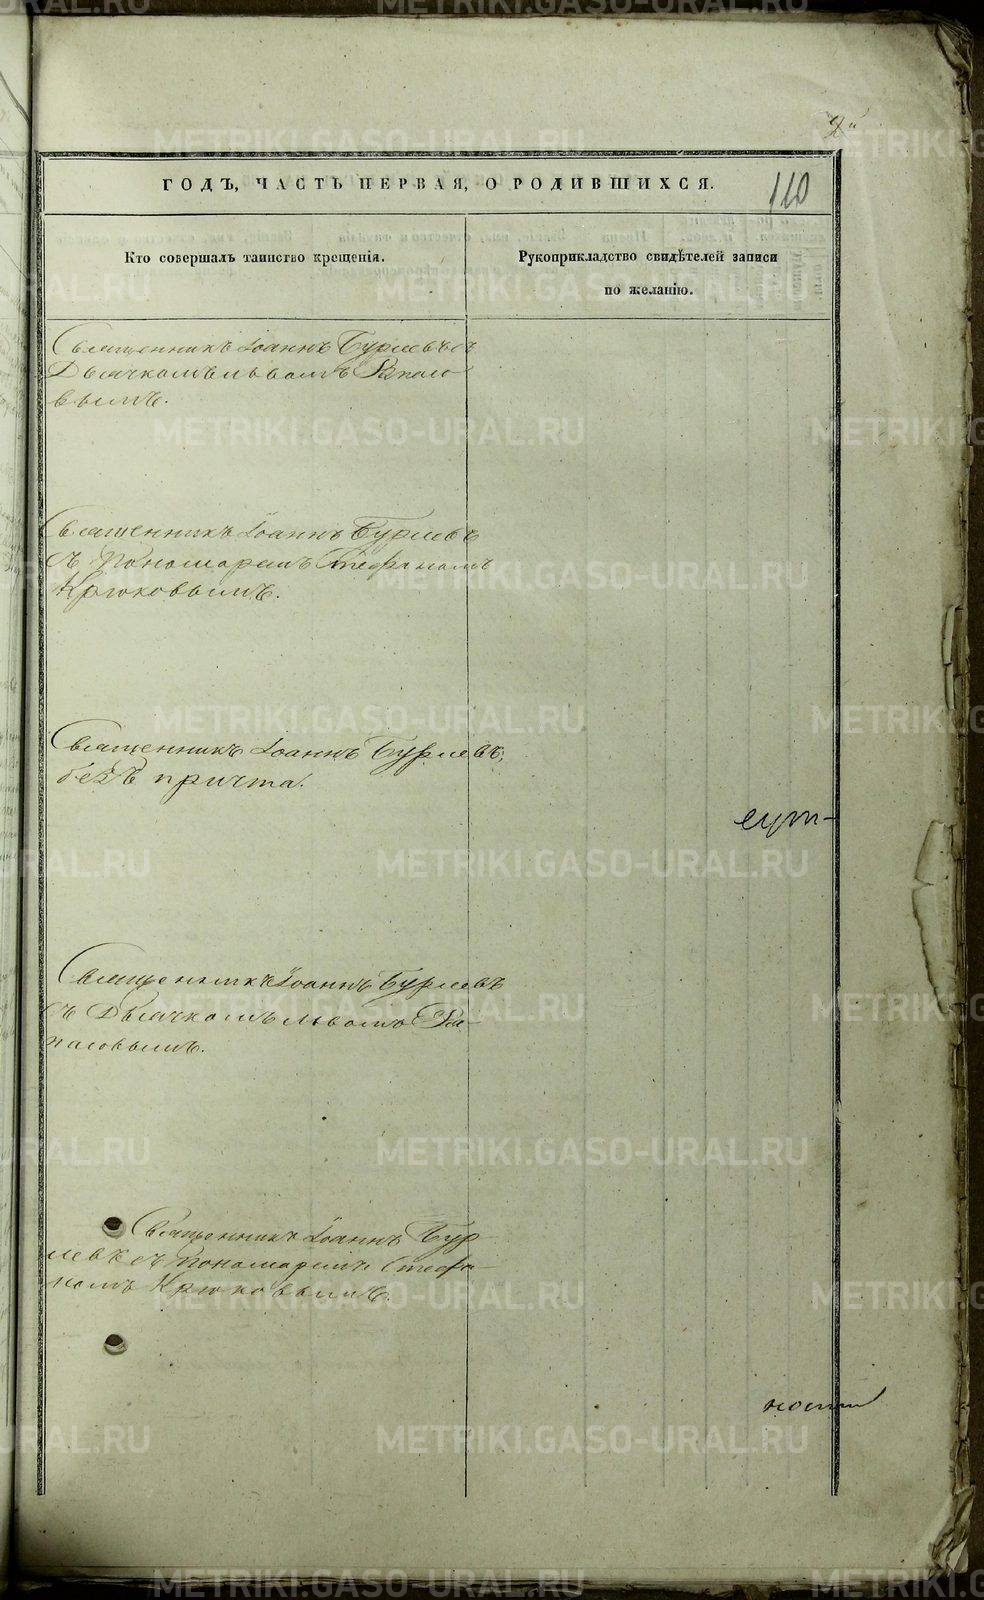 2й
ГОДЪ, ЧАСТЬ ПЕРВАЯ, О РОДИВШИХСЯ.
110
Кто совершалъ таинство крещенія.
Рукоприкладство свидѣтелей записи
по желанію.
Священникъ Іоаннъ Бурлевъ съ
Дьячкомъ Львомъ
вымъ.
Священникъ Іоаннъ Бурлевъ
съ Пономаремъ Стефаномъ
Крюковымъ.
Священникъ Іоаннъ Бурлевъ,
безъ причта.
Священникъ Іоаннъ Бурлевъ
съ Дьячкомъ Львомъ
Священникъ Іоаннъ Бур
левъ съ Пономаремъ Стефа-
номъ Крюковымъ.
ности
METRIKI.GASO-URAL.RU